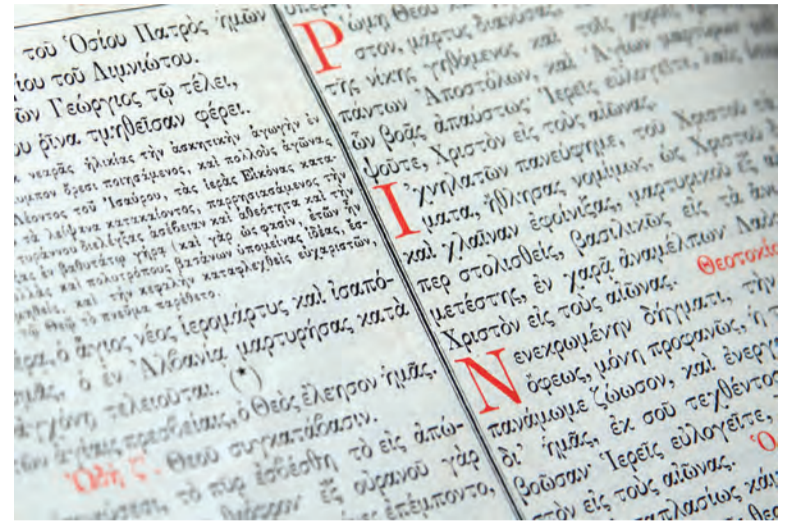 τοῦ Ὁσίου Πατρὸς ἡμῶν
τοῦ Λιμνιώτου.
Γεώργιος τῷ τέλει,
ῥῖνα τμηθεῖσαν φέρει.
νεαρᾶς ἡλικίας τὴν ἀσκητικὴν ἀγωγὴν ἐν
ὄρεσι ποιησάμενος, καὶ πολλοὺς ἀγῶνας
Λέοντος τοῦ Ἰσαύρου, τὰς ἱερὰς Εἰκόνας κατα-
τὰ λείψανα κατακαίοντος, παρρησιασάμενος τὴν
διελέγξας ἀσέβειαν καὶ ἀθεότητα καὶ τὴν
ἐν βαθυτάτῳ γήρᾳ (καὶ γὰρ ὥς φασιν, ἐτῶν ἦν
καὶ πολυτρόπους βασάνων ὑπομείνας ἰδέας,
καὶ τὴν κεφαλὴν καταφλεχθεὶς εὐχαριστῶν,
τῷ Θεῷ τὸ πνεῦμα παρέθετο.
ὁ ἅγιος νέος ἱερομάρτυς καὶ ἰσαπό-
ὁ ἐν Ἀλβανίᾳ μαρτυρήσας κατὰ
ἀγχόνῃ τελειοῦται. (*)
ἁγίαις πρεσβείαις, ὁ Θεὸς ἐλέησον ἡμᾶς.
ᾨδὴ ζʹ. Θεοῦ συγκατάβασιν.
τὸ πῦρ ἐσβέσθη τὸ εἰς ἀπώ-
ἐξ οὐρανοῦ γὰρ
ἐπέμποντο,
Ῥώμῃ Θεοῦ καὶ
στον, μάρτυς διανύσας,
τῆς νίκης γηθόμενος καὶ τοῖς χοροῖς
πάντων Ἀποστόλων, καὶ Ἁγίων μαρτύρων
ὧν βοᾷς ἀπαύστως· Ἱερεῖς εὐλογεῖτε, λαὸς
ψοῦτε, Χριστὸν εἰς τοὺς αἰῶνας.
Ἰχνηλατῶν πανεύφημε, τοῦ Χριστοῦ τὰ
ματα, ἤθλησας νομίμως, ὡς Χριστοῦ
καὶ χλαῖναν ἐφοίνιξας, μαρτυρικοῦ ἐξ
περ στολισθείς, βασιλικῶς εἰς τὰ
μετέστης, ἐν χαρᾷ ἀναμέλπων Λαὸς
Χριστὸν εἰς τοὺς αἰῶνας. Θεοτοκίο
Νενεκρωμένην δήγματι, τὴν
ὄφεως, μόνη προφανῶς, ἡ
πανάμωμε ζώωσον, καὶ ἐνεργ
δι' ἡμᾶς, ἐκ σοῦ τεχθέντος
βοῶσαν· Ἱερεῖς εὐλογεῖτε,
στὸν εἰς τοὺς αἰῶνας. Ὁ